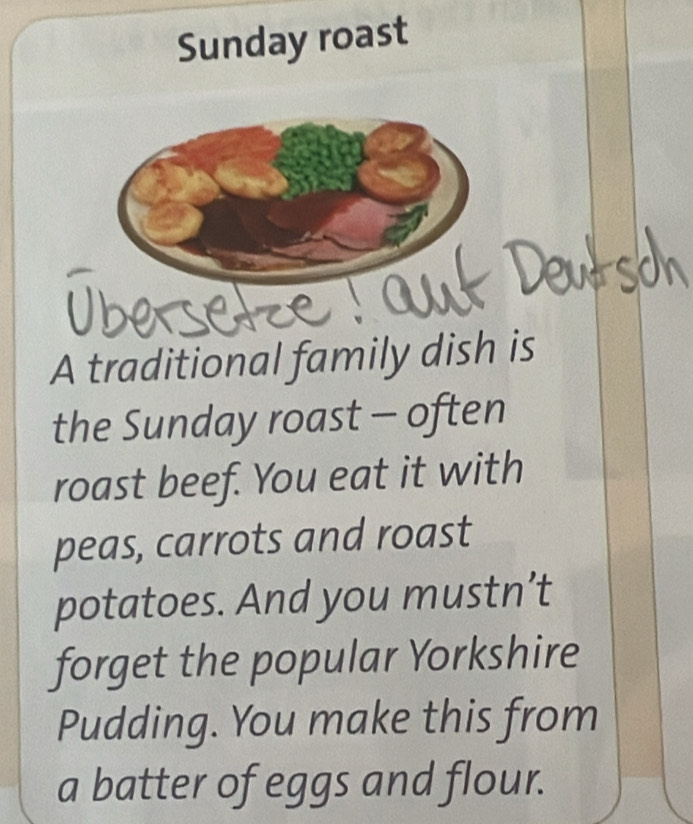 Sunday roast
Übersetze! auf Deutsch
A traditional family dish is
the Sunday roast – often
roast beef. You eat it with
peas, carrots and roast
potatoes. And you mustn't
forget the popular Yorkshire
Pudding. You make this from
a batter of eggs and flour.